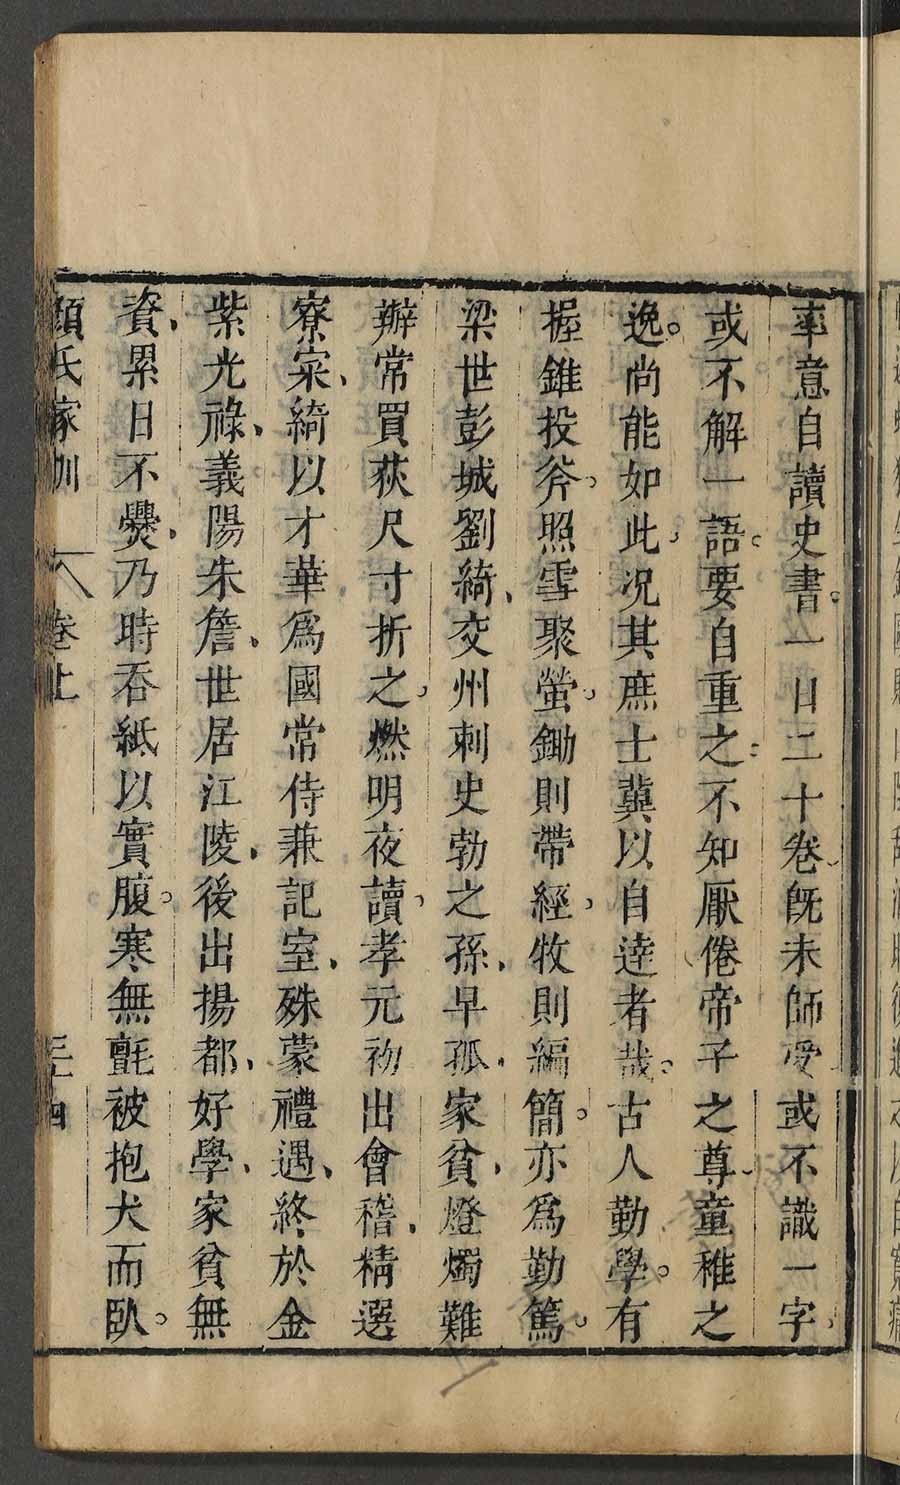 率意自讀史書。一日二十卷旣未師受或不識一字
或不解一語。要自重之不知厭倦帝子之尊童稚之
逸。尚能如此况其庶士冀以自達者哉。古人勤學。有
握錐投斧。照雪聚螢。鋤則帶經牧則編簡。亦爲勤篤。
梁世彭城劉綺、交州刺史勃之孫、早孤、家貧、燈燭難
辦常買荻尺寸折之、燃明夜讀、孝元初出會稽、精選
寮寀、綺以才華爲國常侍兼記室、殊蒙禮遇、終於金
紫光祿、義陽朱詹、世居江陵、後出揚都、好學、家貧無
資、累日不爨、乃時吞紙以實腹。寒無氈被抱犬而臥。
顏氏家訓 卷上 三十四